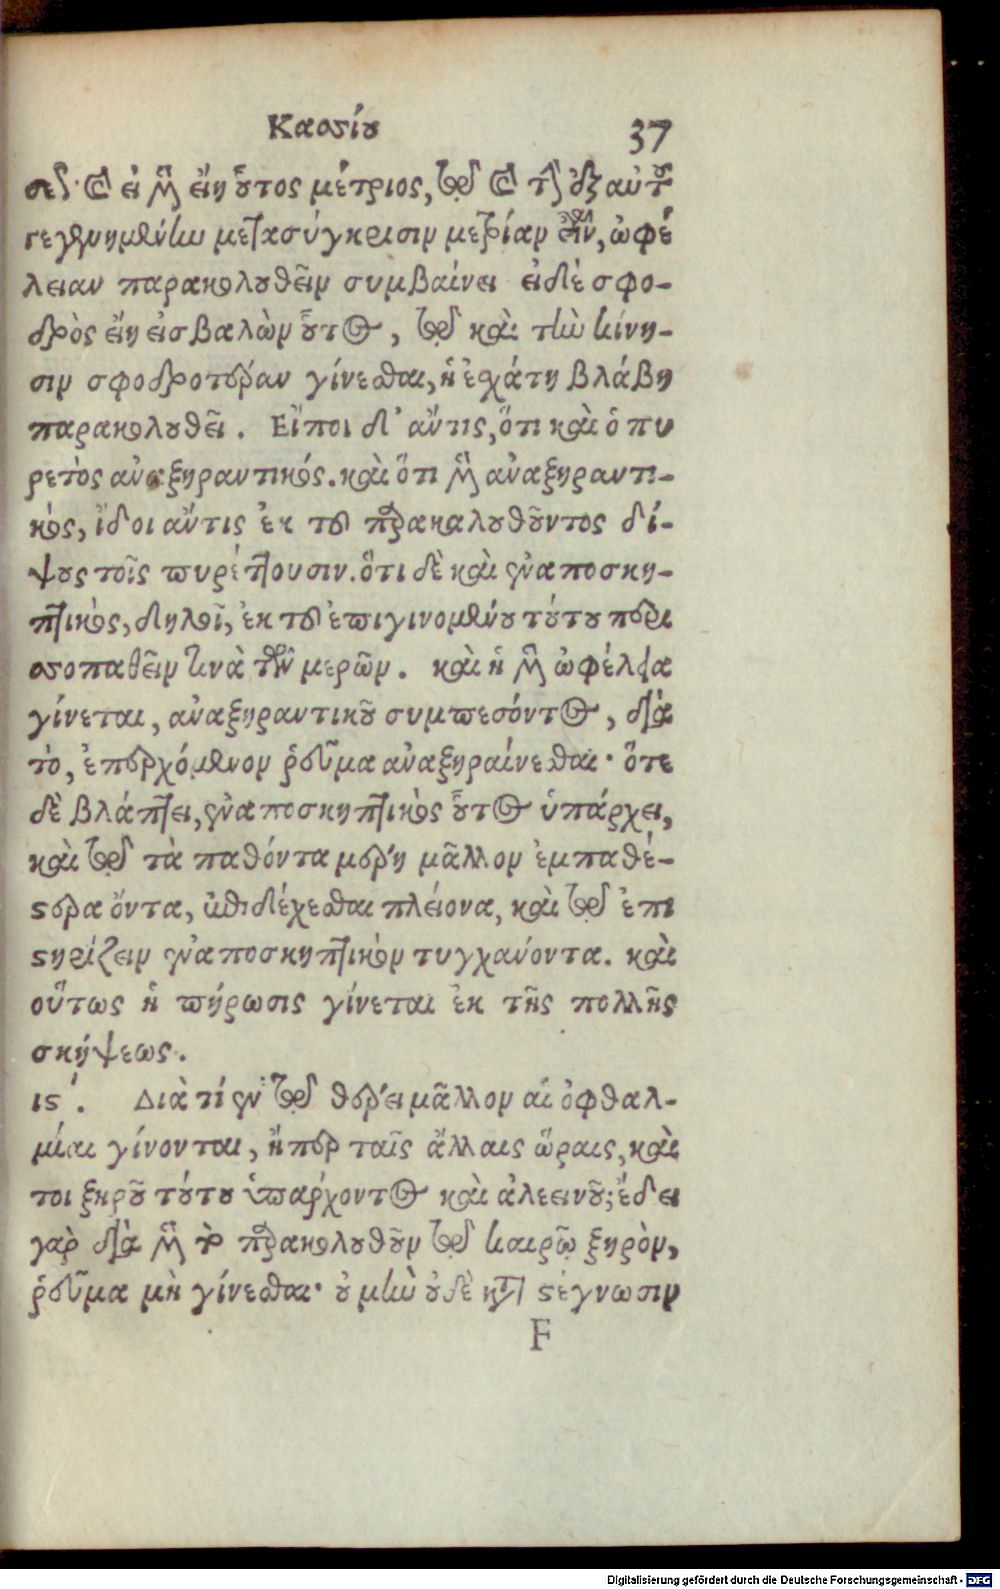 Κασσίου 37
σεως· καὶ εἰ μὲν εἴη οὗτος μέτριος, τῷ καὶ τὴν δι' αὐτοῦ
γεγενημένην μετασύγκρισιν μετρίαν εἶναι, ὠφέ
λειαν παρακολουθεῖν συμβαίνει εἰδὲ σφο-
δρὸς εἴη εἰσβαλὼν οὗτος, τῷ καὶ τὴν κίνη-
σιν σφοδροτέραν γίνεσθαι, ἡ ἐσχάτη βλάβη
παρακολουθεῖ. Εἴποι δ' ἄντις, ὅτι καὶ ὁ πυ
ρετὸς ἀναξηραντικός. καὶ ὅτι μὲν ἀναξηραντι-
κὸς, ἴδοι ἄντις ἐκ τοῦ παρακαλουθοῦντος δί-
ψους τοῖς πυρέττουσιν. ὅτι δὲ καὶ ἐναποσκη-
πτικὸς, δηλοῖ, ἐκ τοῦ ἐπιγινομένου τούτου περι
σσοπαθεῖν τινὰ τῶν μερῶν. καὶ ἡ μὲν ὠφέλεια
γίνεται, ἀναξηραντικοῦ συμπεσόντος, διὰ
τὸ, ἐπερχόμενον ῥεῦμα ἀναξηραίνεσθαι· ὅτε
δὲ βλάπτει, ἐναποσκηπτικὸς οὗτος ὑπάρχει,
καὶ τῷ τὰ παθόντα μέρη μᾶλλον ἐμπαθέ-
στερα ὄντα, ἐπιδέχεσθαι πλείονα, καὶ τῷ ἐπι
στηρίζειν ἐναποσκηπτικὸν τυγχανόντα. καὶ
οὕτως ἡ πήρωσις γίνεται ἐκ τῆς πολλῆς
σκήψεως.
ις΄. Διὰ τί ἐν τῷ θέρει μᾶλλον αἱ ὀφθαλ-
μίαι γίνονται, ἤπερ ταῖς ἄλλαις ὥραις, καὶ
τοι ξηροῦ τούτου ὑπαρχοντος καὶ ἀλεεινοῦ; ἔδει
γὰρ διὰ μὲν τὸ παρακολουθοῦν τῷ καιρῷ ξηρὸν,
ῥεῦμα μὴ γίνεσθαι· οὐ μὴν οὐδὲ κατὰ στέγνωσιν
F
Digitalisierung gefördert durch die Deutsche Forschungsgemeinschaft - DFG